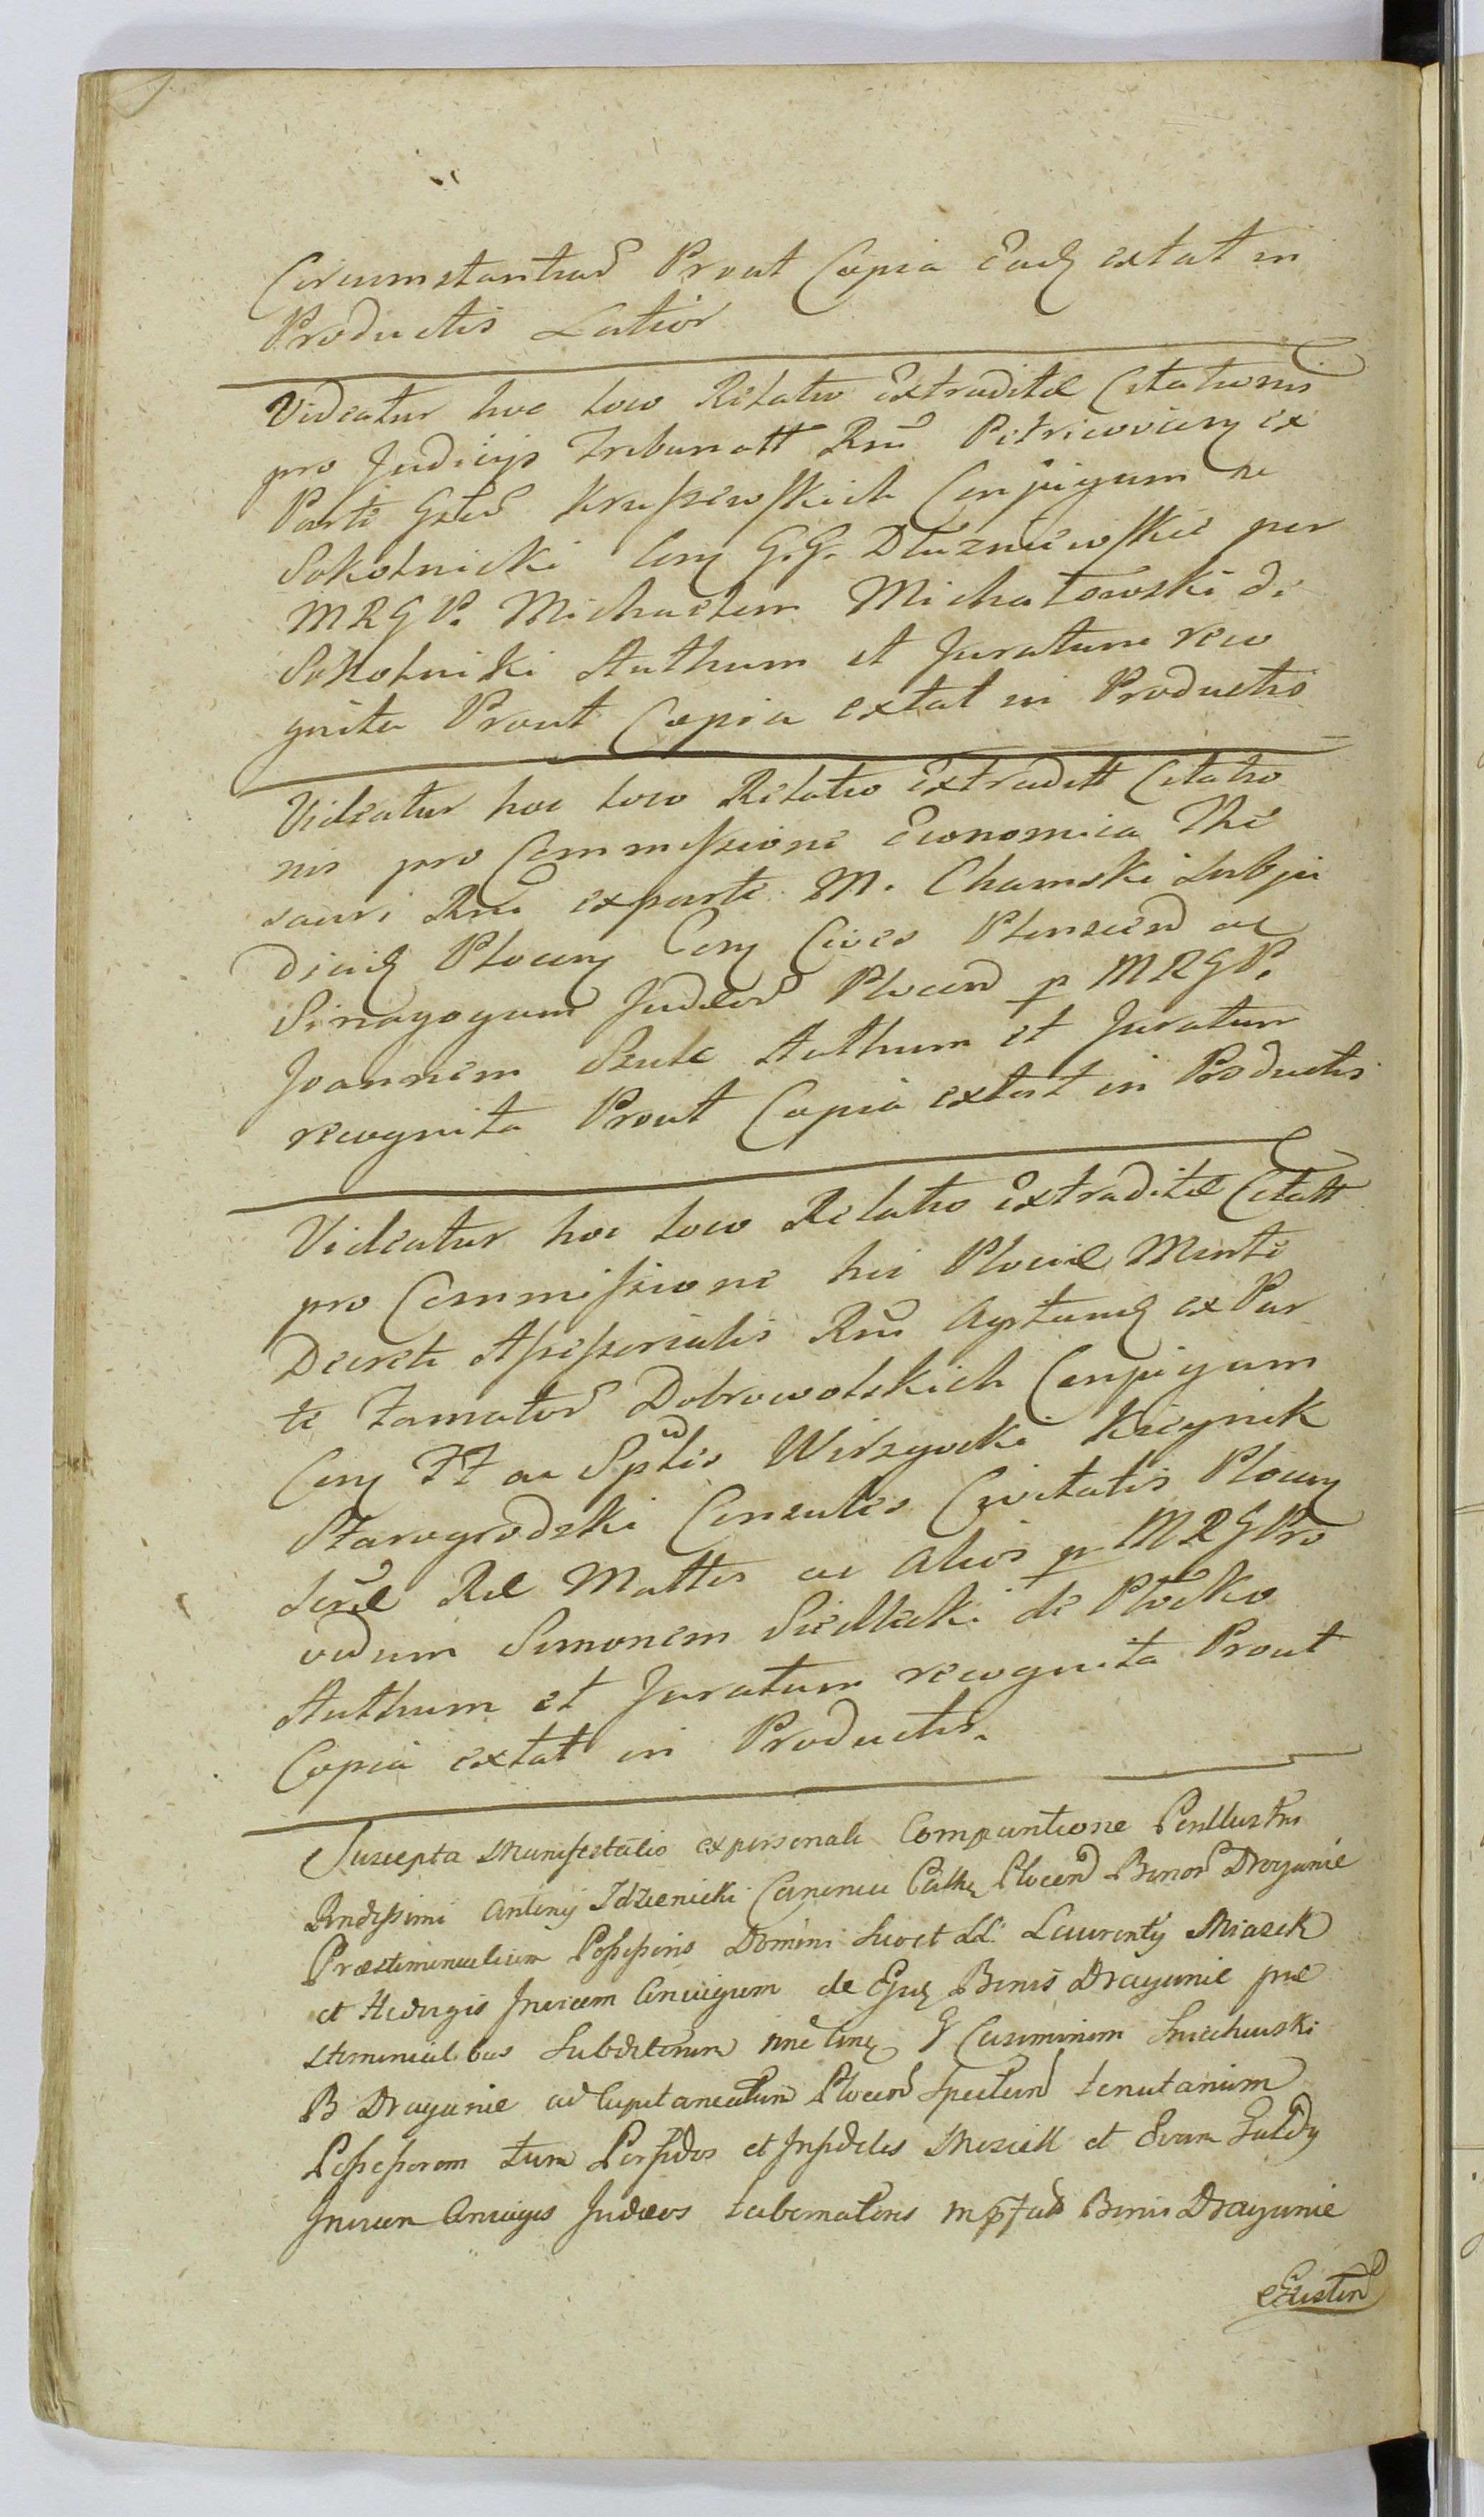 Circumstantiad Prout Copia Ead extat in
Productis Latior
Videatur hoc loco Relatio Extraditæ Citationis
pro Judicijs Tribunatt Rni Petricovien ex
Parte Gsed Kruszewskich Conjugum de
Sokolnicki Con G.G. Dłuzniewskie per
MRGP. Michaelem Michałowski de
Sokolniki Authum et Juratum reco
gnita Prout Copia extat in Productis
Videatur hoc loco Relatio Extraditt Citatio
nis pro Commissione Economica The
sauri Rni exparte M. Chamski Subju
dicis Plocen Con Cives Plonscen ac
Sinagogam Judeor Plocen p MRGP.
Joannem Szulc Authum et Juratum
recognita Prout Copia extat in Productis
Videatur hoc loco Relatio Extraditæ Citatt
pro Commissione hic Plociæ Mente
Decreti Assessorialis Rni Agitand ex Par
te Famator Dobrowolskich Conjugum
Con FF ac Sptles Wirzywcki Kscynik
Starogrodzki Consules Civitatis Plocen
Seræ Ræ Mattis ac alios p MRGPro
vidum Simonem Siedlecki de Płocko
Authum et Juratum recognita Prout
Copia extat in Productis.
Suscepta Manifestatio ex personali Comparitione Perillustris
Rndissimi Antonij Idzienicki Canonici Cathe Plocen Bonor Draganie
Præstimonialium Possessoris Domini Sui et LL. Laurentij Miasek
et Hedvigis Invicem Conjugum de Ejus Bonis Draganie præ
stimonialibus Subditorum nne Con G Casimirum Sniechowski
B Draganie ad Capitaneatum Plocen Spectan tenutarium
Possessorem tum Perfidos et Infideles Mosiek et Evam Guldy
Invicem Conjuges Judæos tabernatores in pftis Bonis Draganie
Existen